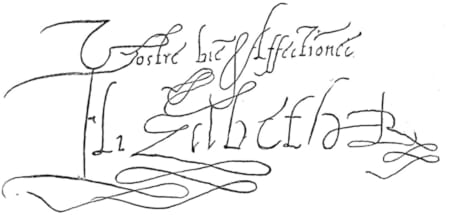 Vostre biē Affectionee
Elizabeth R